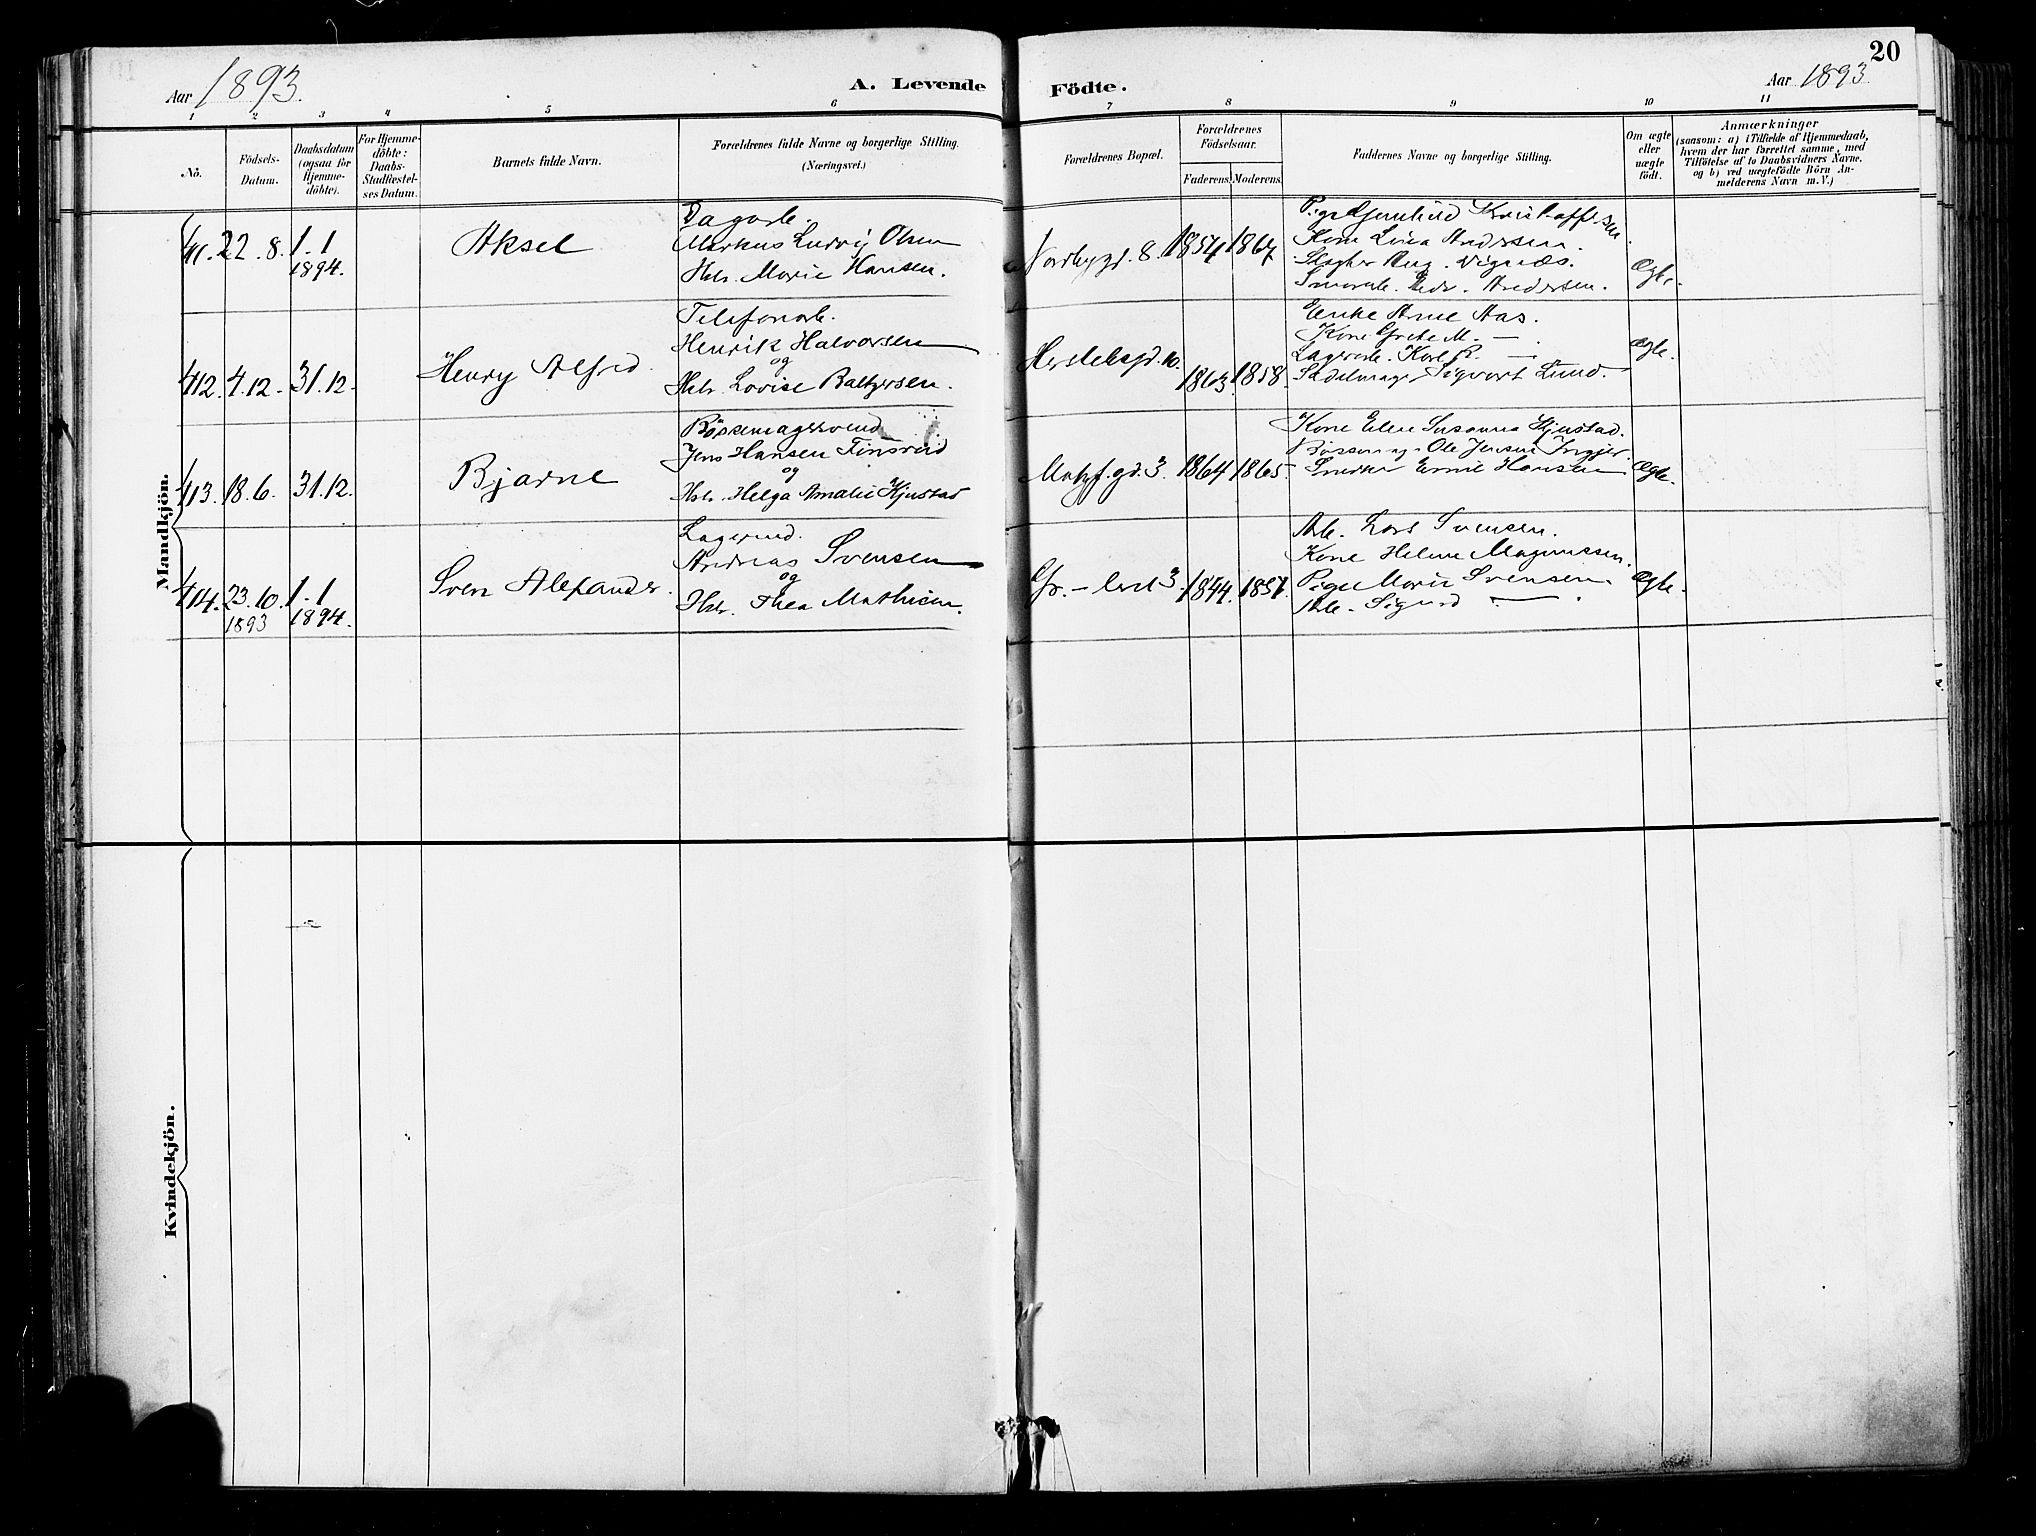 20
Aar 1893.
A. Levende Födte.
Aar 1893
1 2 3 4 5 6 7 8 9 10 11
Nö.
Födsels-Datum.
Daabsdatum (ogsaa for Hjemme-döbte).
For Hjemme-döbte: Daabs-Stadfæstel-ses Datum.
Barnets fulde Navn.
Forældrenes fulde Navne og borgerlige Stilling. (Næringsvei.)
Forældrenes Bopæl.
Forældrenes Födselsaar.
Faderens. Moderens.
Faddernes Navne og borgerlige Stilling.
Om ægte eller uægte födt.
Anmærkninger
(saasom: a) i Tilfælde af Hjemmedaab,
hvem der har forrettet samme, med
Tilföielse af to Daabsvidners Navne.
og b) ved uægtefödte Börn An-
melderens Navn m. V.)
Mandkjön.
411. 22.8. 1.1 1894.
Aksel
Dagarb.
Markus Ludvig Olsen
Hstr. Marie Hansen.
Nordbygd. 8. 1854 1867
Kone Lina Andersen.
Aug. Vignæs.
Andersen.
Ægte.
412. 4.12. 31.12.
Henry Alfred
Telefonarb.
Henrik Halvorsen
og
Hstr. Lovise Baltzersen.
Herslebsgd. 10. 1863. 1858.
Enke Anne Aas.
Kone Grete M. —
Lagerarb. Karl R. —
Sadelmager Sigvart Lund.
Ægte.
413. 18.6. 31.12.
Bjarne
Bössemagersvend
Jens Hansen Finsrud
og
Hstr. Helga Amalie Kjustad
3. 1864 1865.
Kone Elen Susanna Kjustad.
Bössemag. Ole Jensen
Snedker Hansen
Ægte.
414. 23.10. 1893 1.1 1894.
Sven Alexander.
Andreas Svensen
og
Hstr. Thea Mathisen.
3 1844. 1851.
Arb. Lars Svensen.
Kone Helene Magnussen.
Pige Marie Svensen
Arb. Sigurd —
Ægte.
Kvindekjön.